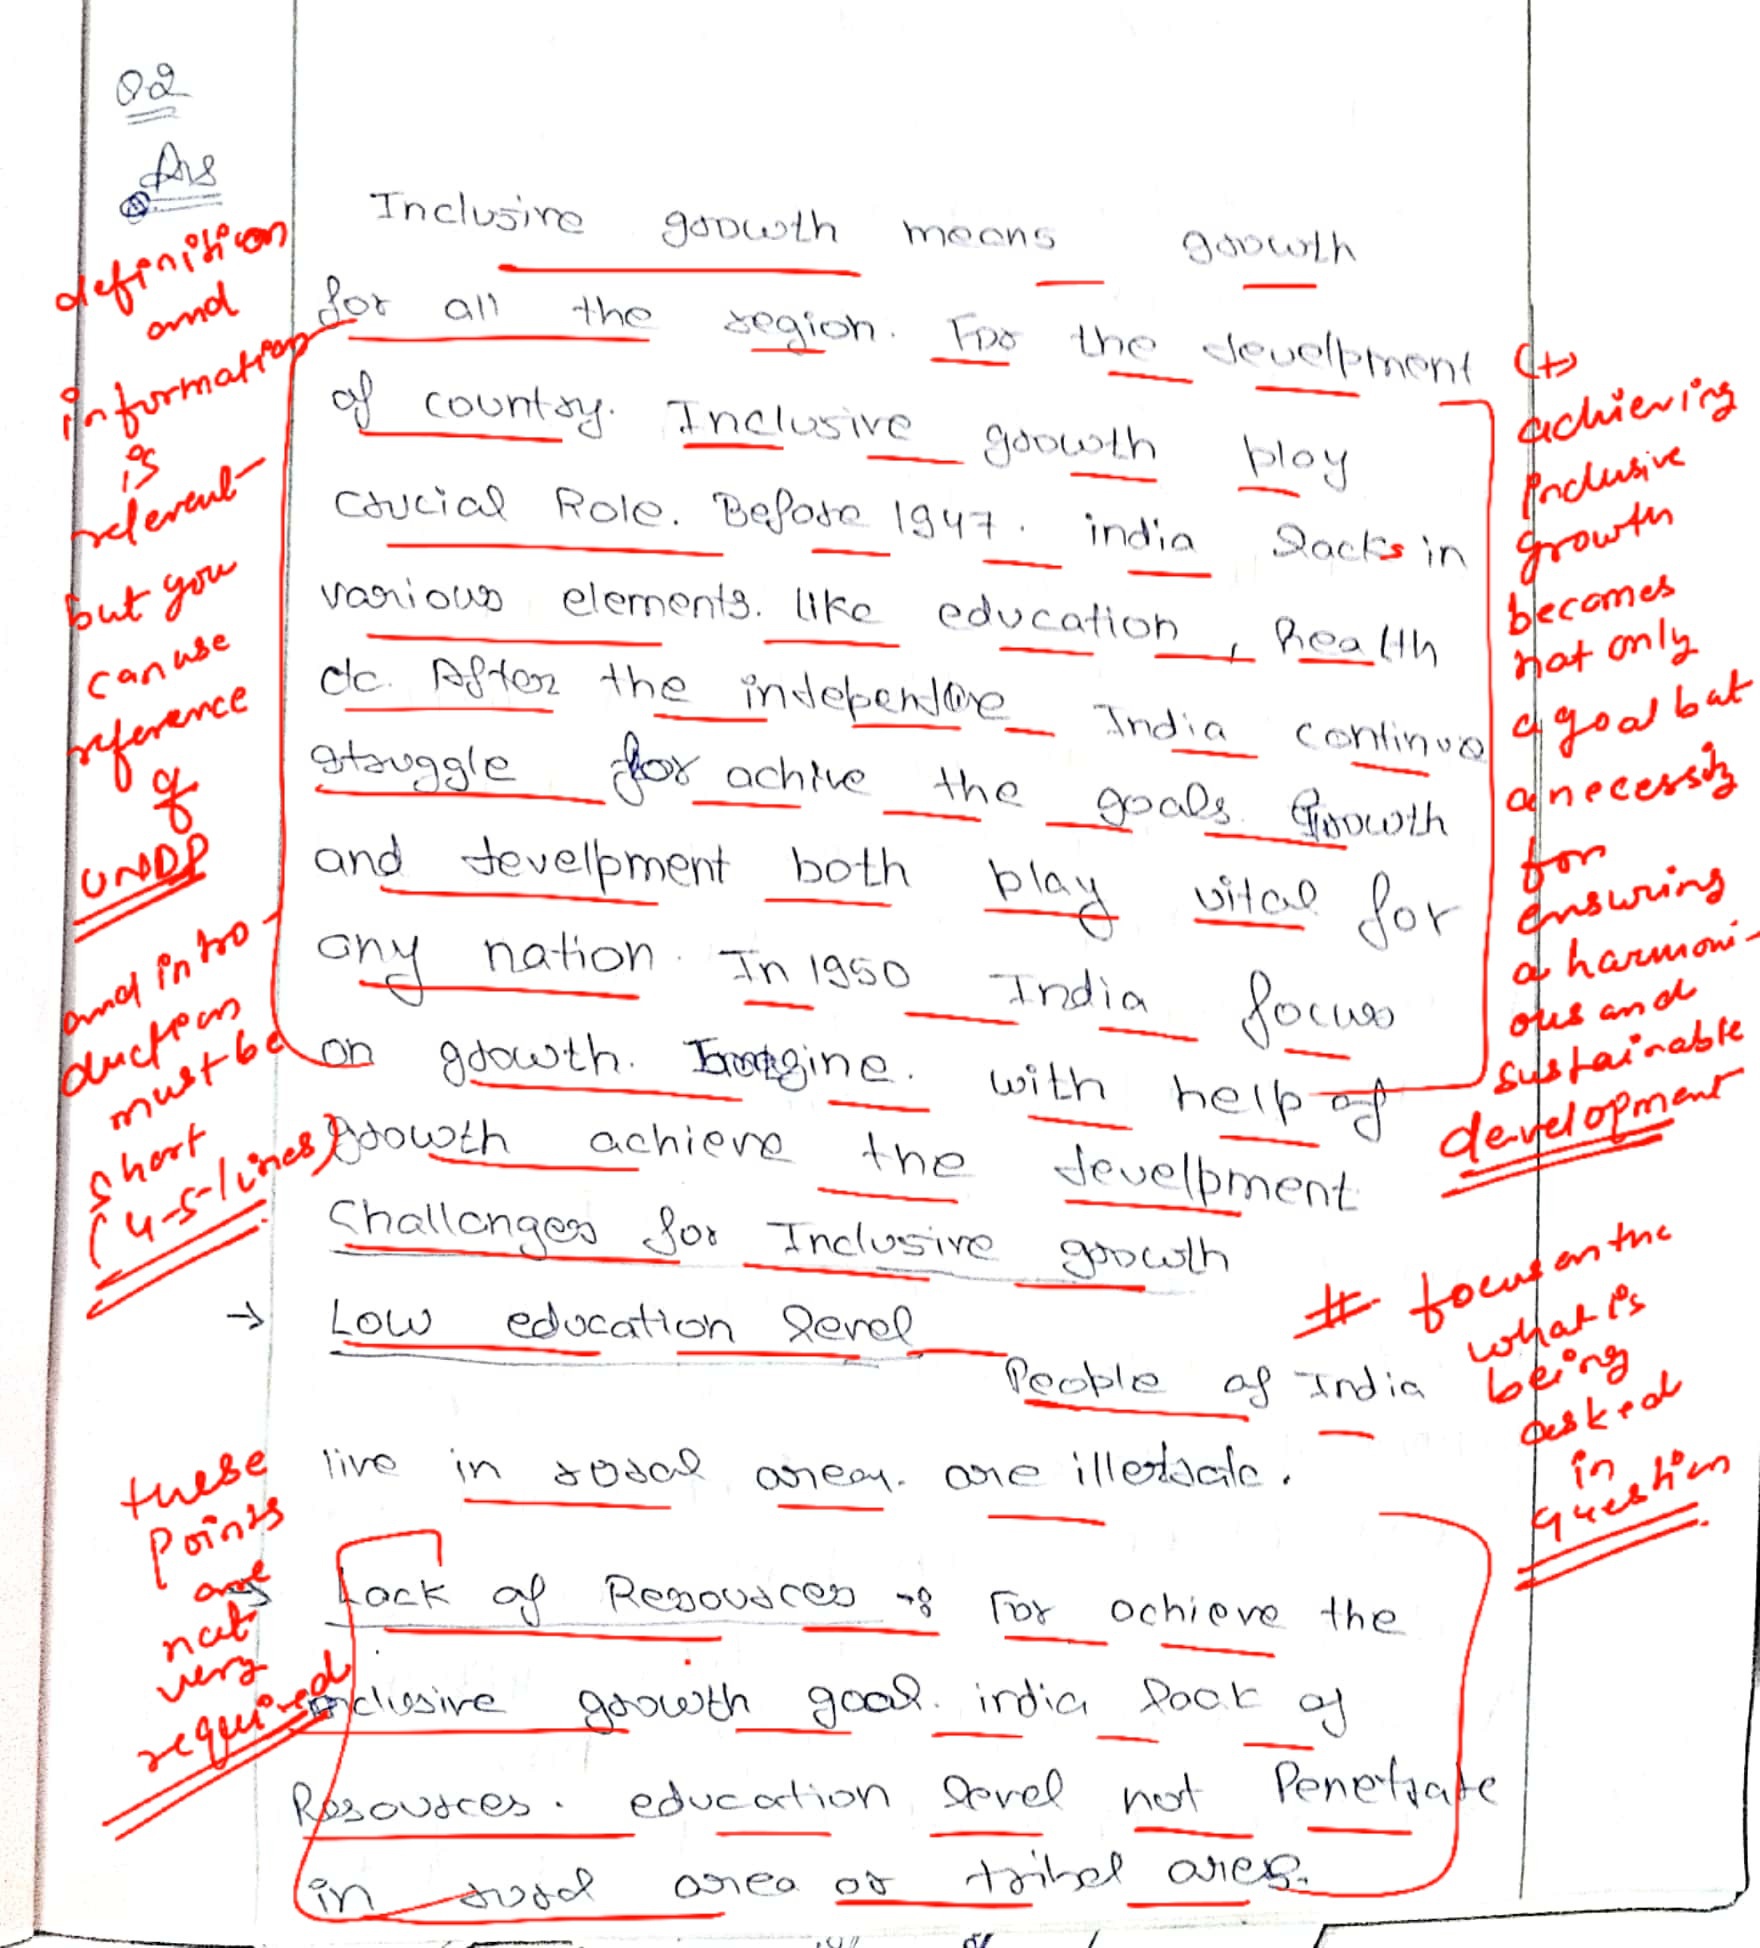 Q2
Ans
Inclusive growth means growth
for all the region. For the develpment
of country. Inclusive growth play
crucial Role. Before 1947. india lacks in
various elements. like education, health
etc. After the indepen India continue
struggle for achive the goals. Growth
and develpment both play vital for
any nation. In 1950 India focus
on growth. with help of
growth achieve the develpment
Challenges for Inclusive growth
→ Low education level
People of India
live in rural area. are
→ Lack of Resources → : For achieve the
inclusive growth goal. india lack of
Resources. education level not Penetrate
in rural area or tribel area.
definition
and
information
is
relevant
but you
can use
reference
of
UNDP
and intro
duction
must be
short
(4-5-lines)
these
points
are
not
very
required
(+)
achieving
inclusive
growth
becomes
not only
a goal but
a necessity
for
ensuring
a harmoni-
ous and
sustainable
development
# focus on the
what is
being
asked
in
question